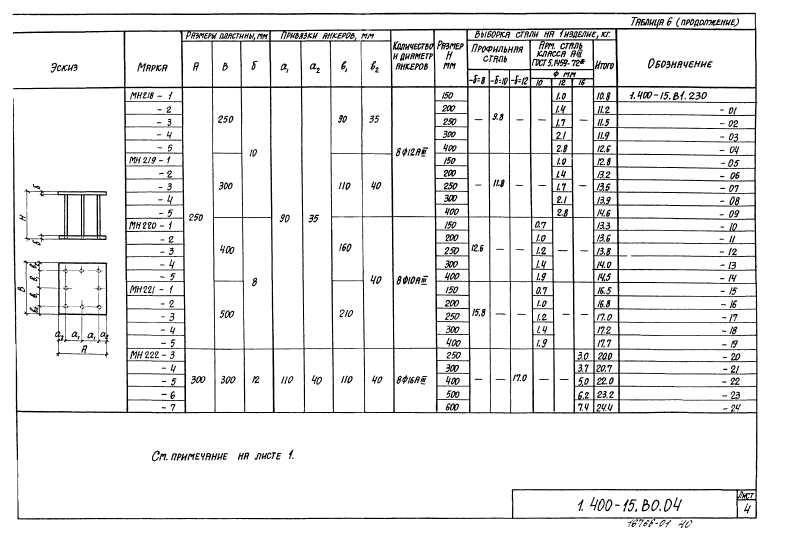 Таблица 6 (продолжение)
Эскиз | Марка | Размеры пластины, мм | Привязки анкеров, мм | Количество и диаметр анкеров | Размер Н мм | Выборка стали на 1 изделие, кг. | Обозначение
А | В | б | а1 | а2 | в1 | в2 | Профильная сталь | Арм. сталь класса АIII ГОСТ 5.1459-72* | Итого
-б=8 | -б=10 | -б=12 | Ф мм
10 | 12 | 16
МН218 - 1 | 250 | 250 | 10 | 90 | 35 | 90 | 35 | 8Ф12АIII | 150 | — | 9.8 | — | — | 1.0 | — | 10.8 | 1.400-15.В1.230
- 2 | 200 | 1.4 | 11.2 | - 01
- 3 | 250 | 1.7 | 11.5 | - 02
- 4 | 300 | 2.1 | 11.9 | - 03
- 5 | 400 | 2.8 | 12.6 | - 04
МН219 - 1 | 300 | 110 | 40 | 150 | — | 11.8 | — | — | 1.0 | — | 12.8 | - 05
- 2 | 200 | 1.4 | 13.2 | - 06
- 3 | 250 | 1.7 | 13.5 | - 07
- 4 | 300 | 2.1 | 13.9 | - 08
- 5 | 400 | 2.8 | 14.6 | - 09
МН220 - 1 | 400 | 8 | 160 | 40 | 8Ф10АIII | 150 | 12.6 | — | — | 0.7 | — | — | 13.3 | - 10
- 2 | 200 | 1.0 | 13.6 | - 11
- 3 | 250 | 1.2 | 13.8 | - 12
- 4 | 300 | 1.4 | 14.0 | - 13
- 5 | 400 | 1.9 | 14.5 | - 14
МН221 - 1 | 500 | 210 | 150 | 15.8 | — | — | 0.7 | — | — | 16.5 | - 15
- 2 | 200 | 1.0 | 16.8 | - 16
- 3 | 250 | 1.2 | 17.0 | - 17
- 4 | 300 | 1.4 | 17.2 | - 18
- 5 | 400 | 1.9 | 17.7 | - 19
МН222 - 3 | 300 | 300 | 12 | 110 | 40 | 110 | 40 | 8Ф16АIII | 250 | — | — | 17.0 | — | — | 3.0 | 20.0 | - 20
- 4 | 300 | 3.7 | 20.7 | - 21
- 5 | 400 | 5.0 | 22.0 | - 22
- 6 | 500 | 6.2 | 23.2 | - 23
- 7 | 600 | 7.4 | 24.4 | - 24
б
Н
б
В
в2
в1
в1
в2
а2 а1 а1 а2
А
См. примечание на листе 1.
1.400-15.В0.04
Лист
4
16766-01 40